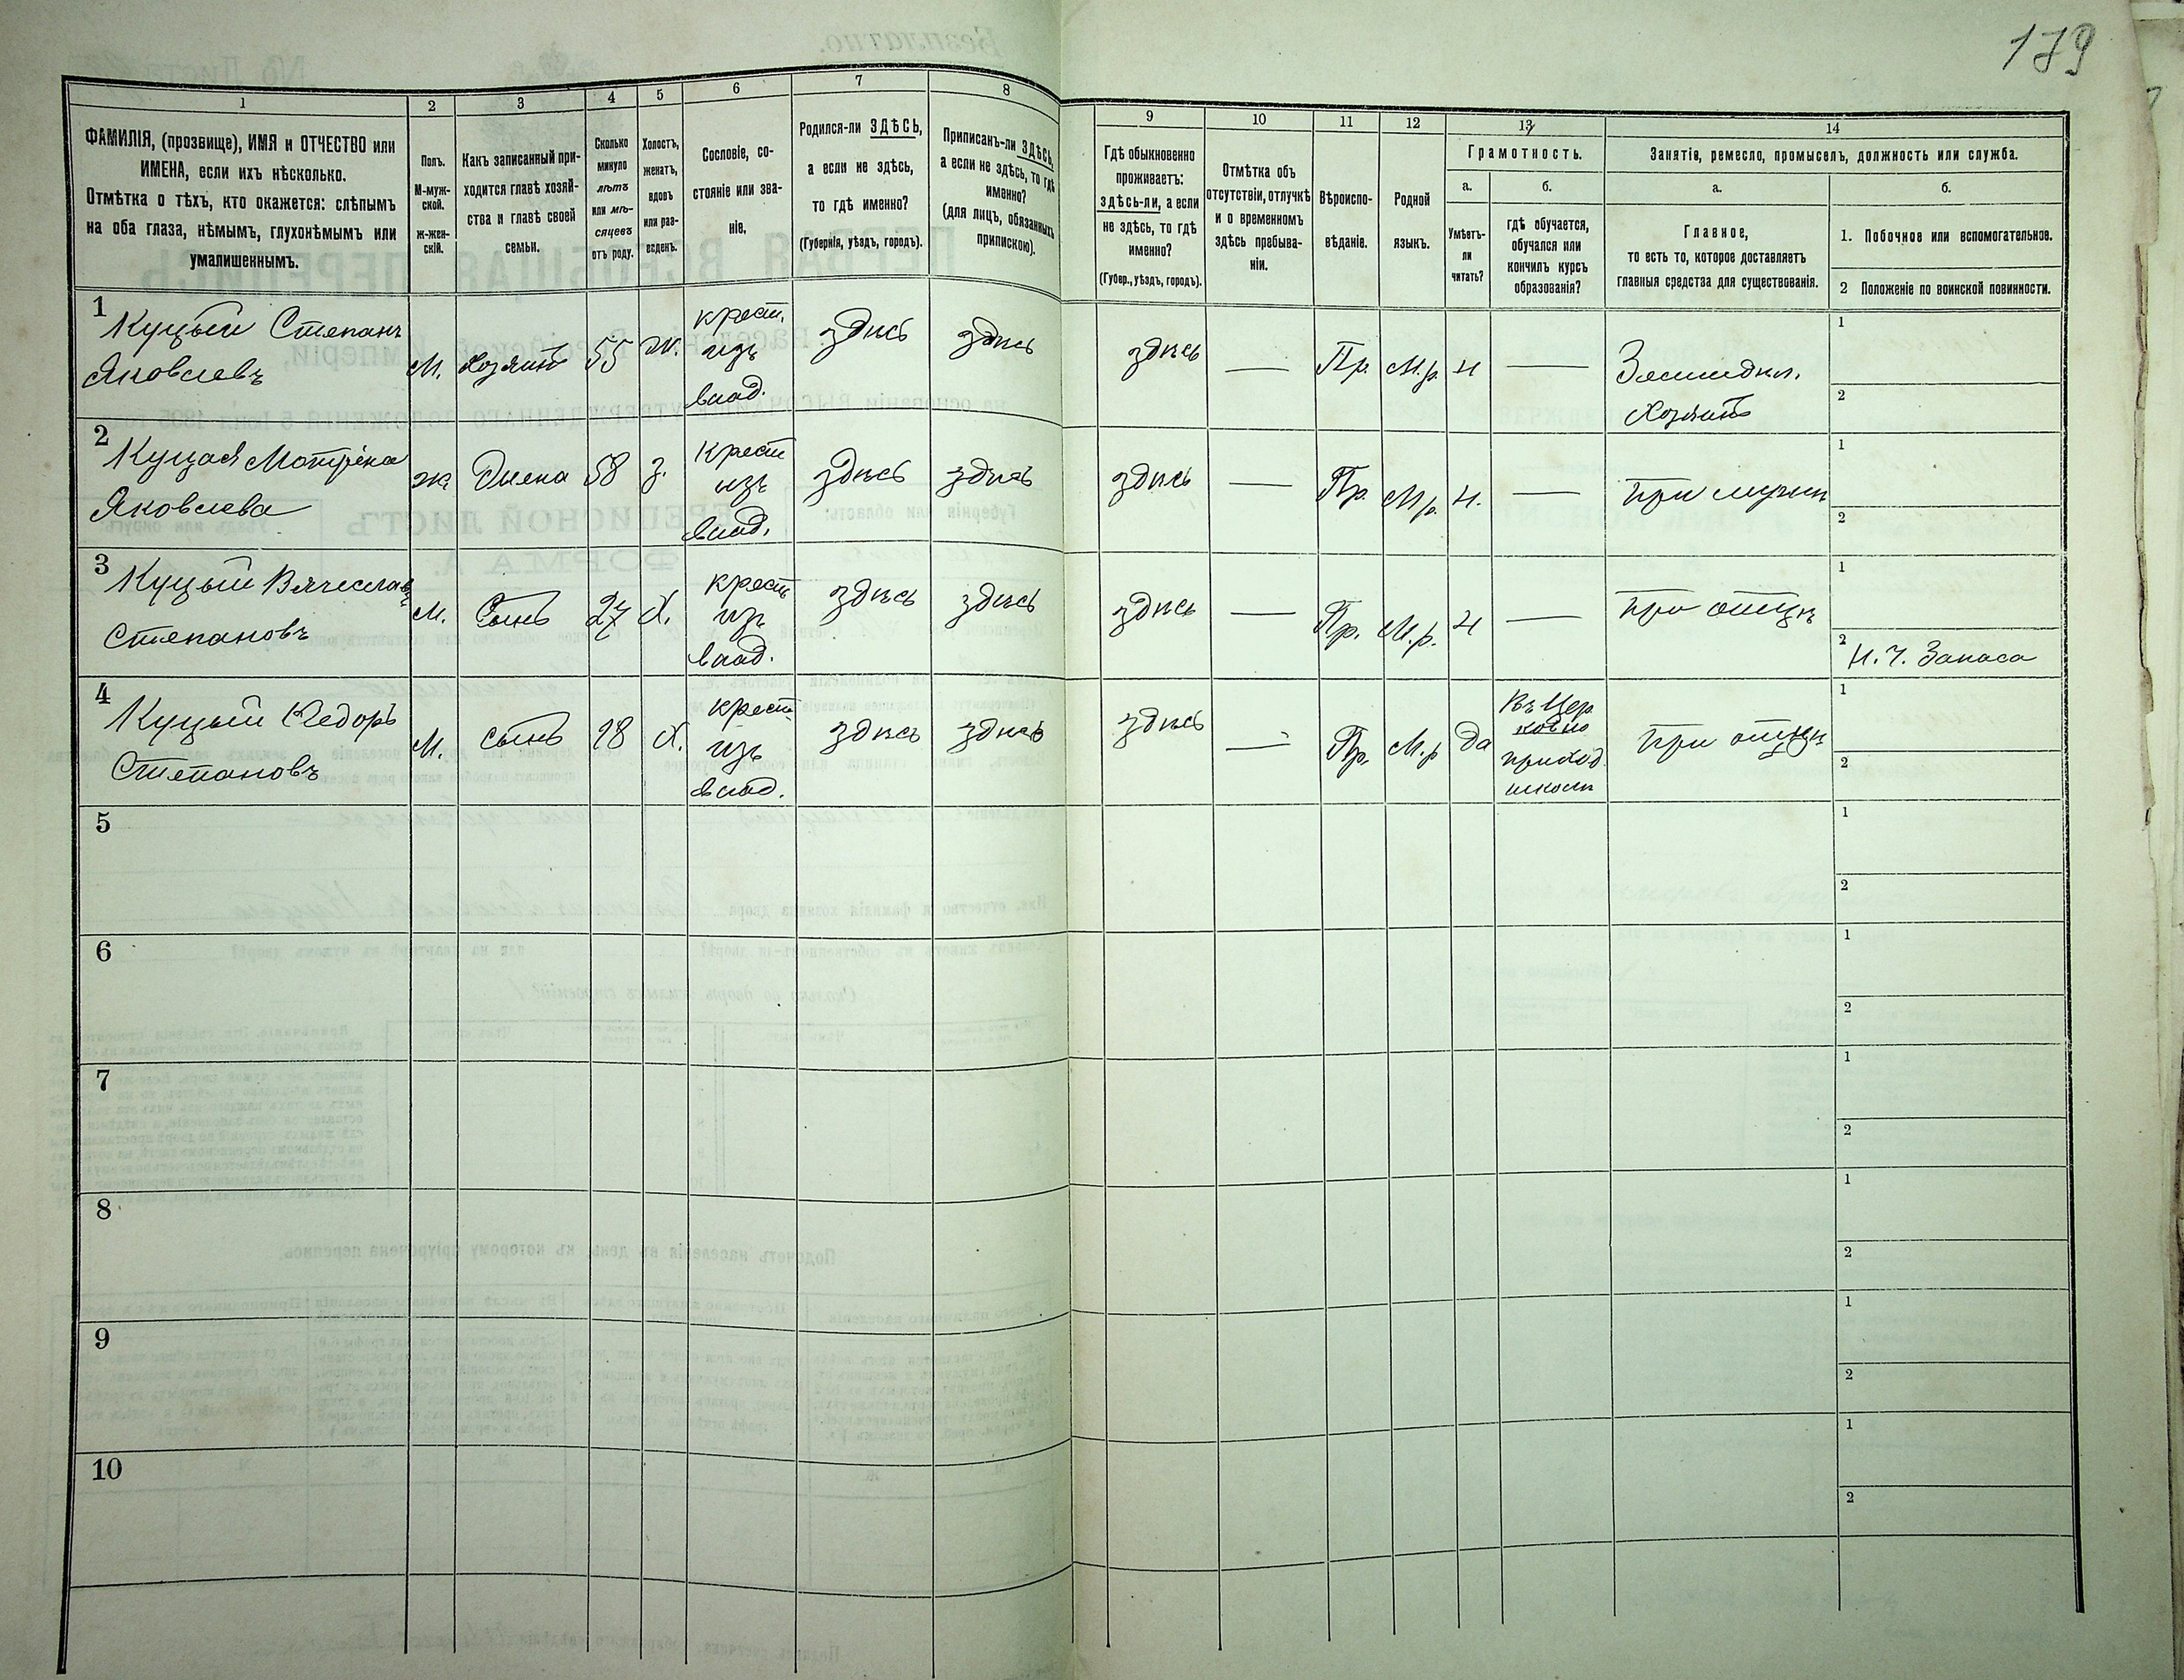 179
1
2
3
4
5
6
7
8
9
10
11
12
13
14
ФАМИЛІЯ, (прозвище), ИМЯ и ОТЧЕСТВО или
ИМЕНА, если ихъ нѣсколько.
Отмѣтка о тѣхъ, кто окажется: слѣпымъ
на оба глаза, нѣмымъ, глухонѣмымъ или
умалишеннымъ.
Полъ.
М-муж-
ской.
ж-жен-
скій.
Какъ записанный при-
ходится главѣ хозяй-
ства и главѣ своей
семьи.
Сколько
минуло
лѣтъ
или мѣ-
сяцевъ
отъ роду.
Холостъ,
женатъ,
вдовъ
или раз-
веденъ.
Сословіе, со-
стояніе или зва-
ніе.
Родился-ли ЗДѢСЬ,
а если не здѣсь,
то гдѣ именно?
(Губернія, уѣздъ, городъ).
Приписанъ-ли ЗДѢСЬ,
а если не здѣсь, то гдѣ
именно?
(для лицъ, обязанныхъ
припискою).
Гдѣ обыкновенно
проживаетъ:
здѣсь-ли, а если
не здѣсь, то гдѣ
именно?
(Губер., уѣздъ, городъ).
Отмѣтка объ
отсутствіи, отлучкѣ
и о временномъ
здѣсь пребыва-
ніи.
Вѣроиспо-
вѣданіе.
Родной
языкъ.
Грамотность.
а.
Умѣетъ-
ли
читать?
б.
гдѣ обучается,
обучался или
кончилъ курсъ
образованія?
Занятіе, ремесло, промыселъ, должность или служба.
а.
Главное,
то есть то, которое доставляетъ
главныя средства для существованія.
б.
1. Побочное или вспомогательное.
2 Положеніе по воинской повинности.
1
Куцый Степанъ
Яковлевъ
М.
хозяинъ
55
ж.
крест.
изъ
влад.
здѣсь
здѣсь
здѣсь
—
Пр.
М.р.
н
—
Земледѣл.
Хозяинъ
1
2
2
Куцая Мотрена
Яковлева
ж
Жена
58
з.
крест
изъ
влад.
здѣсь
здѣсь
здѣсь
—
Пр.
М.р.
н.
—
при мужѣ
1
2
3
Куцый Вячеславъ
Степановъ
М.
Сынъ
27
х.
крест
изъ
влад.
здѣсь
здѣсь
здѣсь
—
Пр.
М.р.
н
—
при отцѣ
1
2
Н.Ч. Запаса
4
Куцый Федоръ
Степановъ
М.
сынъ
18
х.
крест
изъ
влад.
здѣсь
здѣсь
здѣсь
—
Пр.
М.р
да
Въ Цер
ковно
приход
школѣ
при отцѣ
1
2
5
1
2
6
1
2
7
1
2
8
1
2
9
1
2
10
1
2